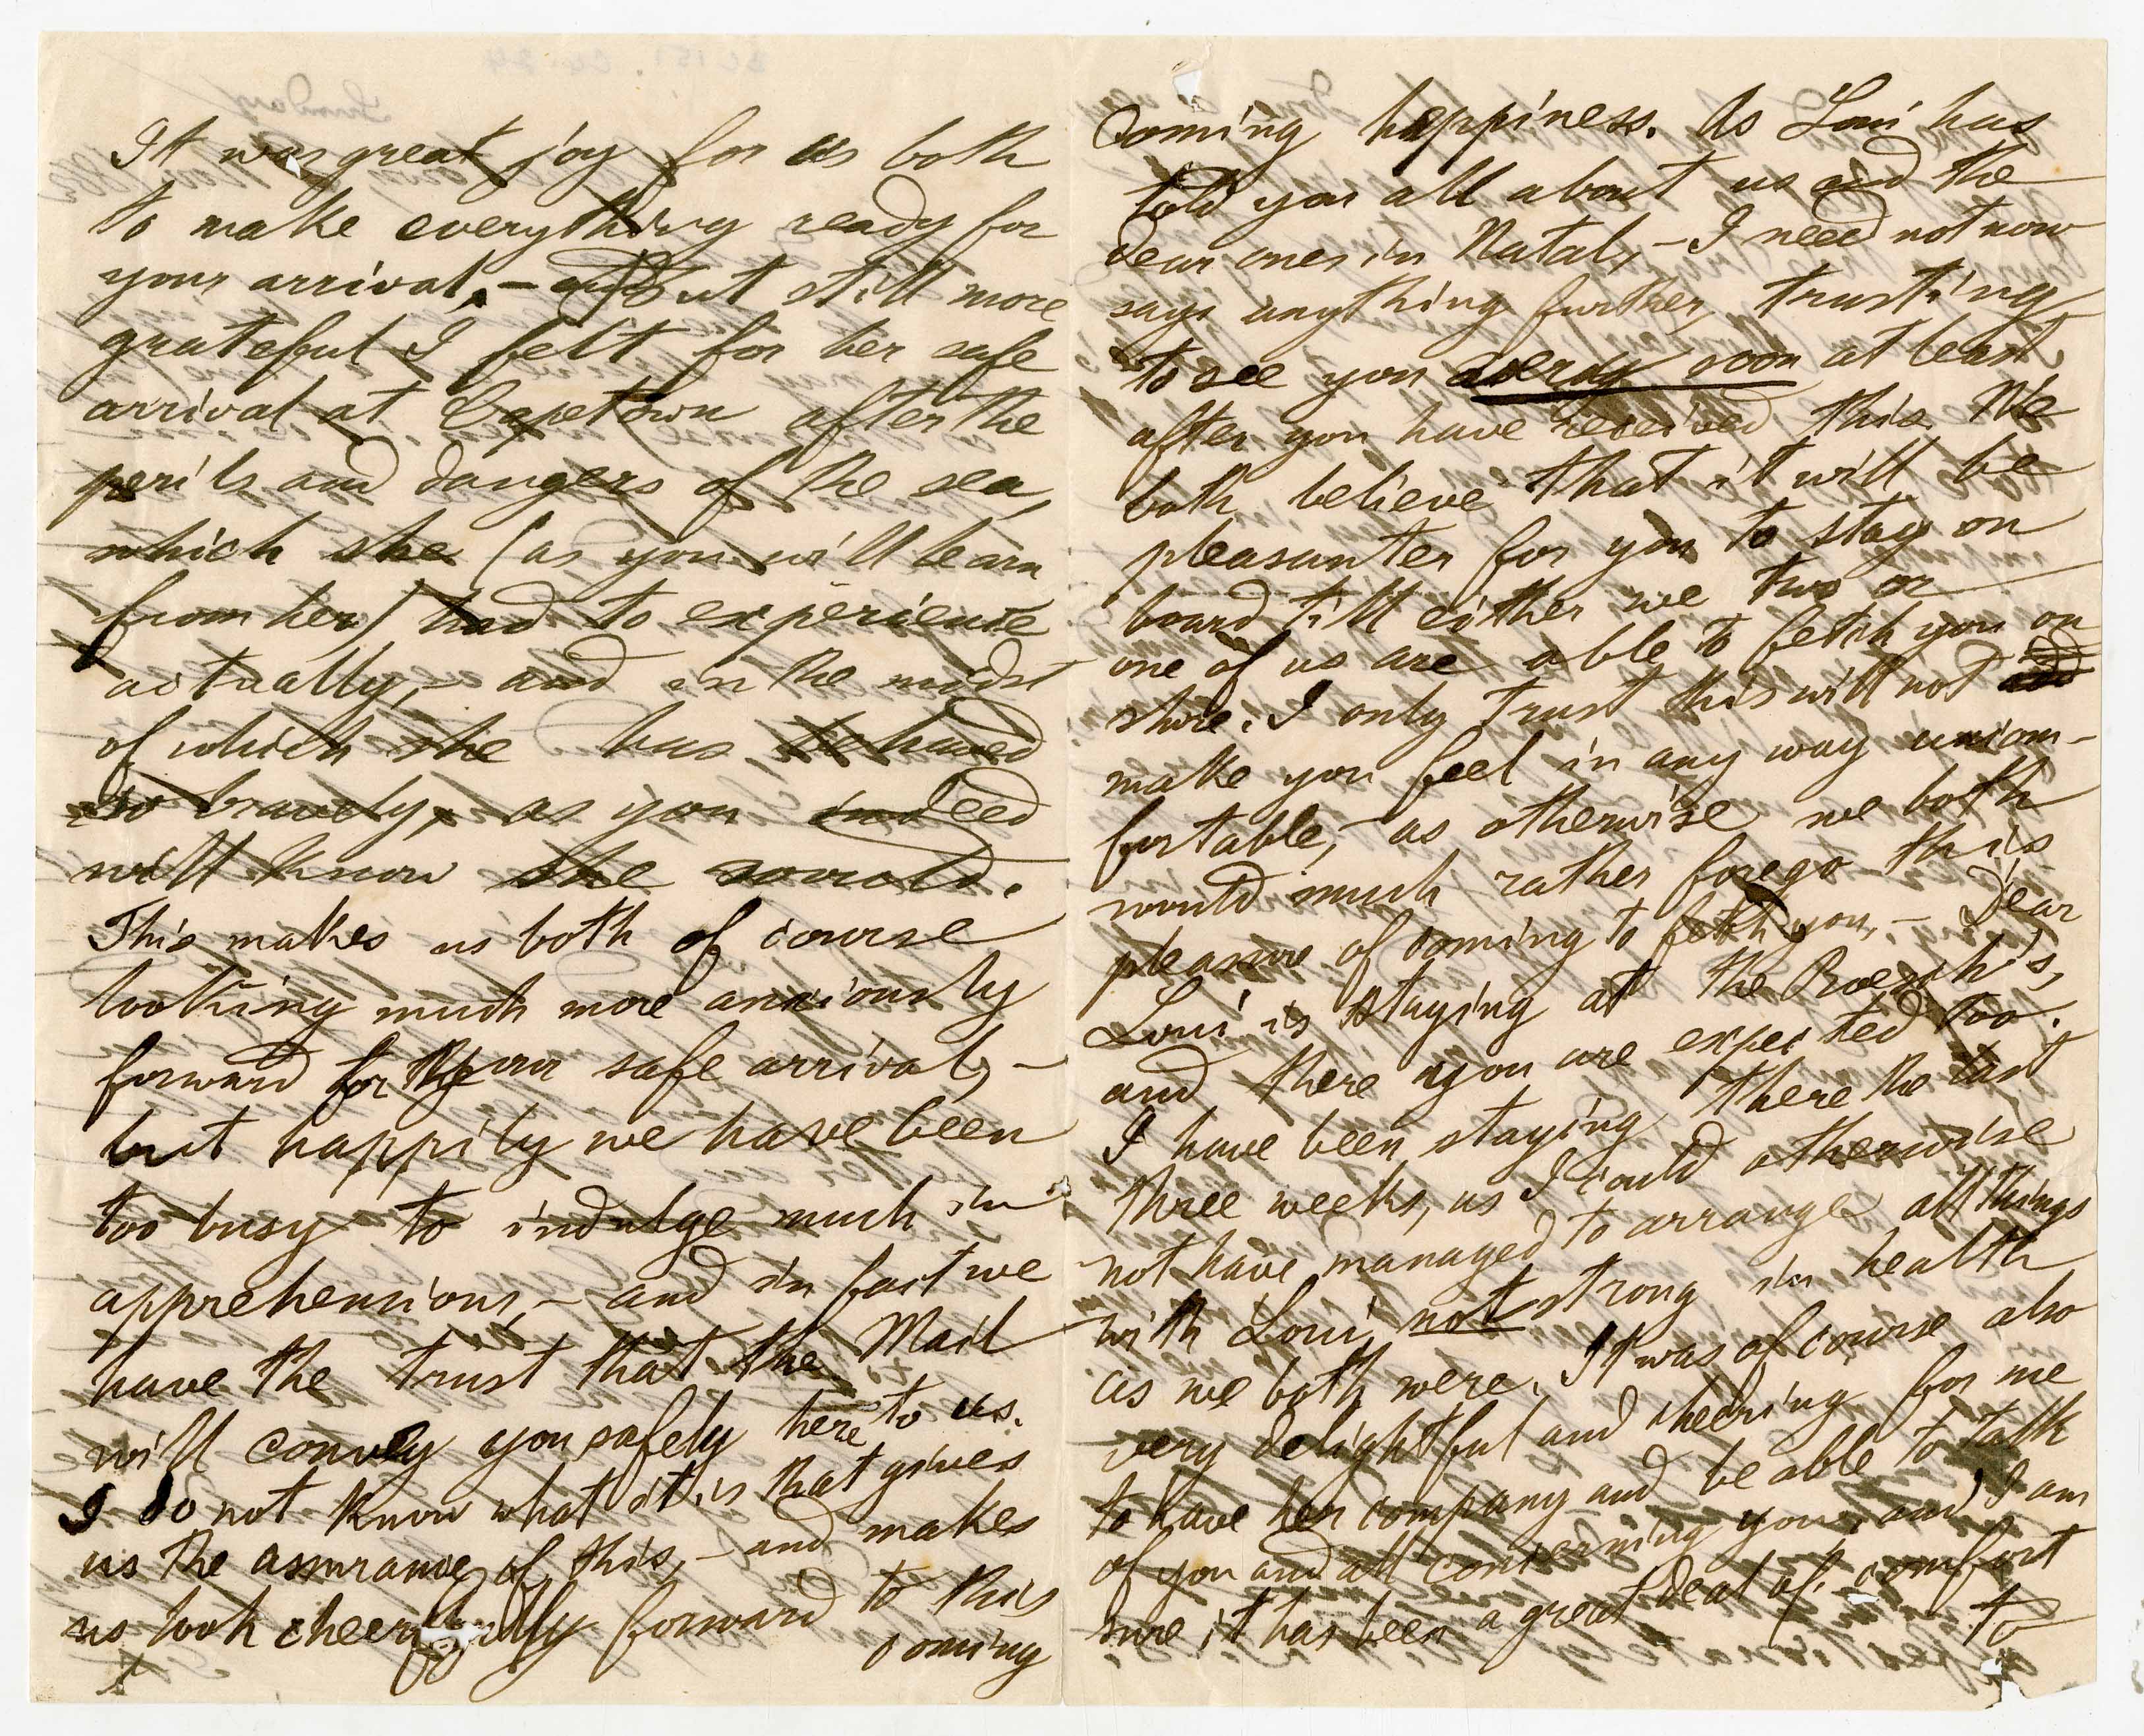 It was great joy for us both
to make everything ready for
your arrival, – But still more
grateful I felt for her safe
arrival at Capetown after the
perils and dangers of the sea,
which she (as you will learn
from her) had to experience
actually, – and in the midst
of which she has behaved
so bravely, as you indeed
will know she would.
This makes us both of course
looking much more anxiously
forward for your safe arrival, –
but happily we have been
too busy to indulge much in
apprehensions, – and in fact we
have the trust that the Mail
will convey you safely here to us.
I do not know what it is that gives
us the assurance of this, – and makes
us look cheerfully forward to this
coming
Coming happiness. As Loui has
told you all about us and the
dear ones in Natal, – I need not now
say anything further, trusting
to see you very soon at least
after you have received this. We
both believe that it will be
pleasanter for you to stay on
board till either we two or
one of us are able to fetch you on
shore. I only trust this will not
make you feel in any way uncom-
fortable, – as otherwise we both
would much rather forego this
pleasure of coming to fetch you, – Dear
Loui is staying at the Roesch's,
and there you are expected too.
I have been staying there the last
three weeks, as I could otherwise
not have managed to arrange all things
with Loui, not strong in health
as we both were. It was of course also
very delightful and cheering for me
to have her company and be able to talk
of you and all concerning you, and I am
sure it has been a great deal of comfort
to